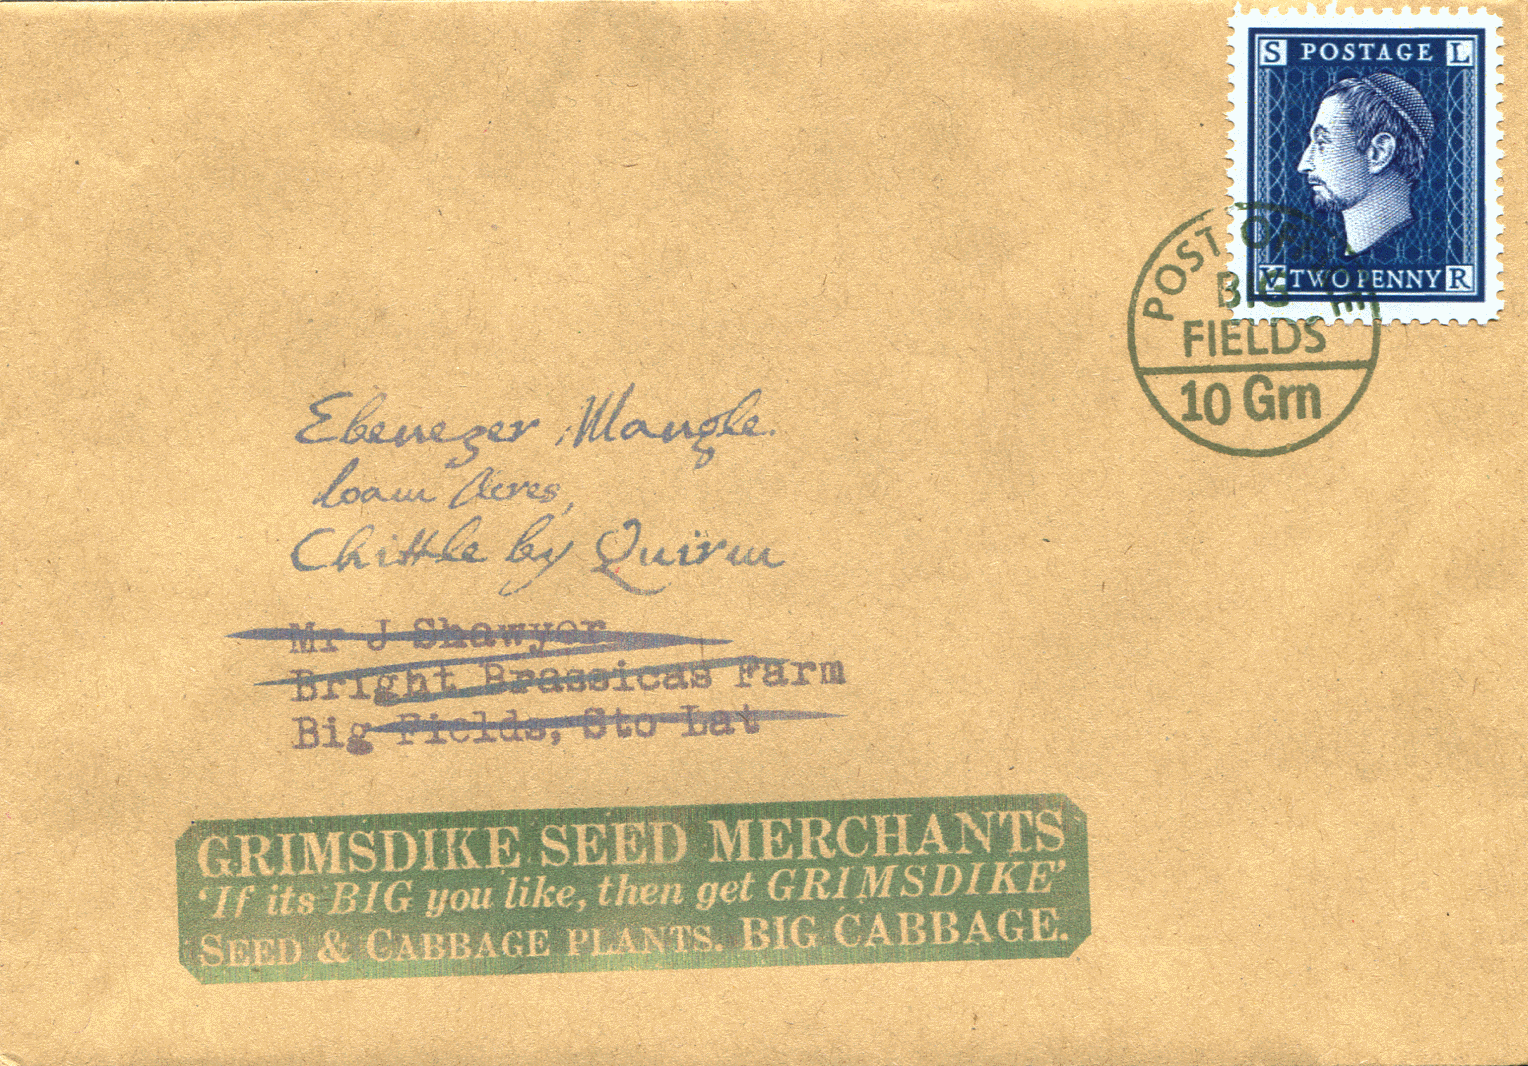 S POSTAGE L
V TWO PENNY R
POST OFFICE
BIG
FIELDS
10 Grn
Ebenezer Mangle.
Loam Acres,
Chittle by Quirm
Mr J Shawyer
Bright Brassicas Farm
Big Fields, Sto Lat
GRIMSDIKE SEED MERCHANTS
'If its BIG you like, then get GRIMSDIKE'
SEED & CABBAGE PLANTS. BIG CABBAGE.